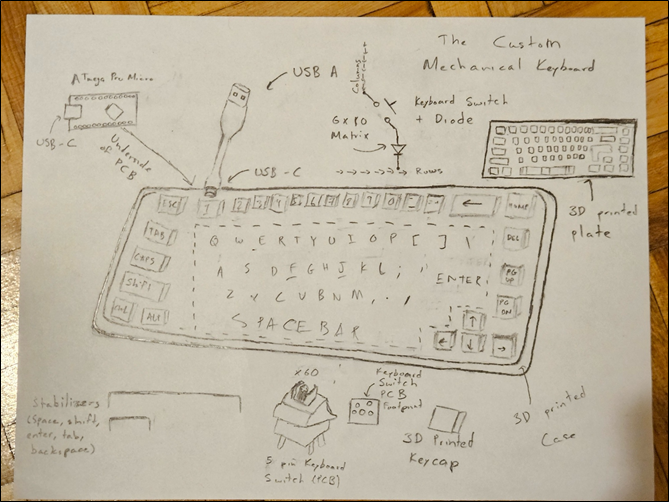 The Custom
Mechanical Keyboard
ATmega Pro Micro
USB-C
Underside
of PCB
USB A
USB-C
Columns
Keyboard Switch
+ Diode
6x10
Matrix
Rows
3D printed
plate
ESC 1 2 3 4 5 6 7 8 9 0 - = ← HOME
TAB Q W E R T Y U I O P [ ] \ DEL
CAPS A S D F G H J K L ; ' ENTER PG UP
Shift Z X C V B N M , . / ↑ PG DN
ctrl ALT SPACEBAR ← ↓ →
Stabilizers
(Space, shift,
enter, tab,
backspace)
x60
5 pin Keyboard
Switch (PCB)
Keyboard
Switch
PCB
Footprint
3D Printed
Keycap
3D printed
Case